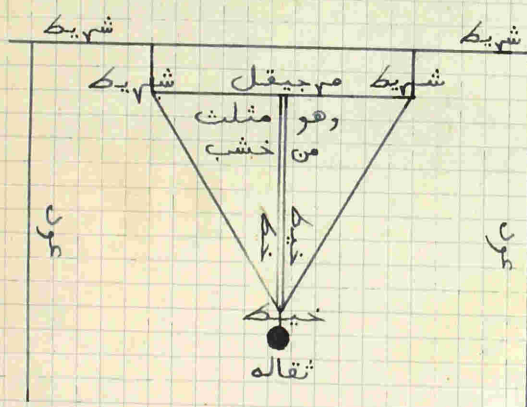 شريط شريط
شريط مرجيقل شريط
وهو مثلث
من خشب
عود خيط خط عود
خيط
ثقاله